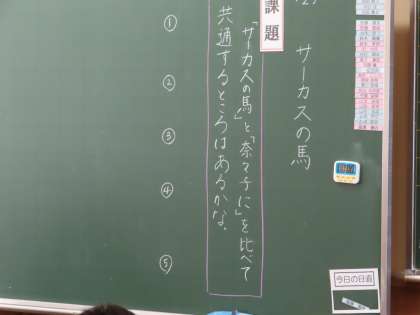 サーカスの馬
課題
「サーカスの馬」と「奈々子に」を比べて
共通するところはあるかな。
①
②
③
④
⑤
今日の日直